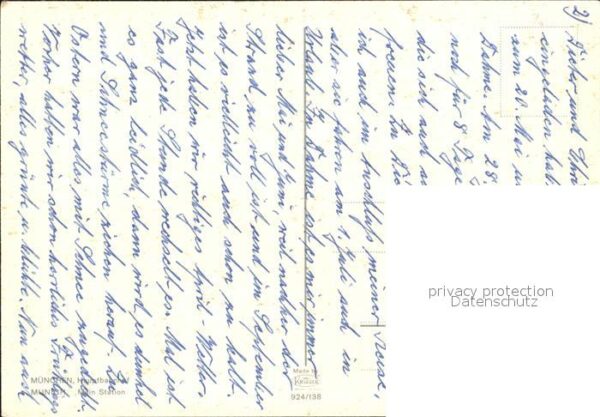 2)
Dieter und
eingeladen
zum 20. Mai
Dahme. Am 28.
noch für 8 Tage
die sich auch
freuen. In
ich auch im Anschluß meiner Reise,
aber wir fahren am 1. Juli auch in
Urlaub. In Dahme ist es mir immer
lieber Mai und Juni, weil nachher der
Strand zu voll ist und im September
ist es vielleicht auch schon zu kalt.
Jetzt haben wir richtiges April-Wetter.
Fast jede Stunde wechselt es. Mal ist
es ganz leidlich, dann wird es dunkel
und Schneestürme ziehen herauf. Zu
Ostern war alles mit Schnee zugedeckt.
Vorher hatten wir schon herrliches Frühlings
wetter, alles grünte u. blühte. Nun
MÜNCHEN, Hauptbahnhof
MUNICH, Main Station
Made by
Krüger
924/138
privacy protection
Datenschutz